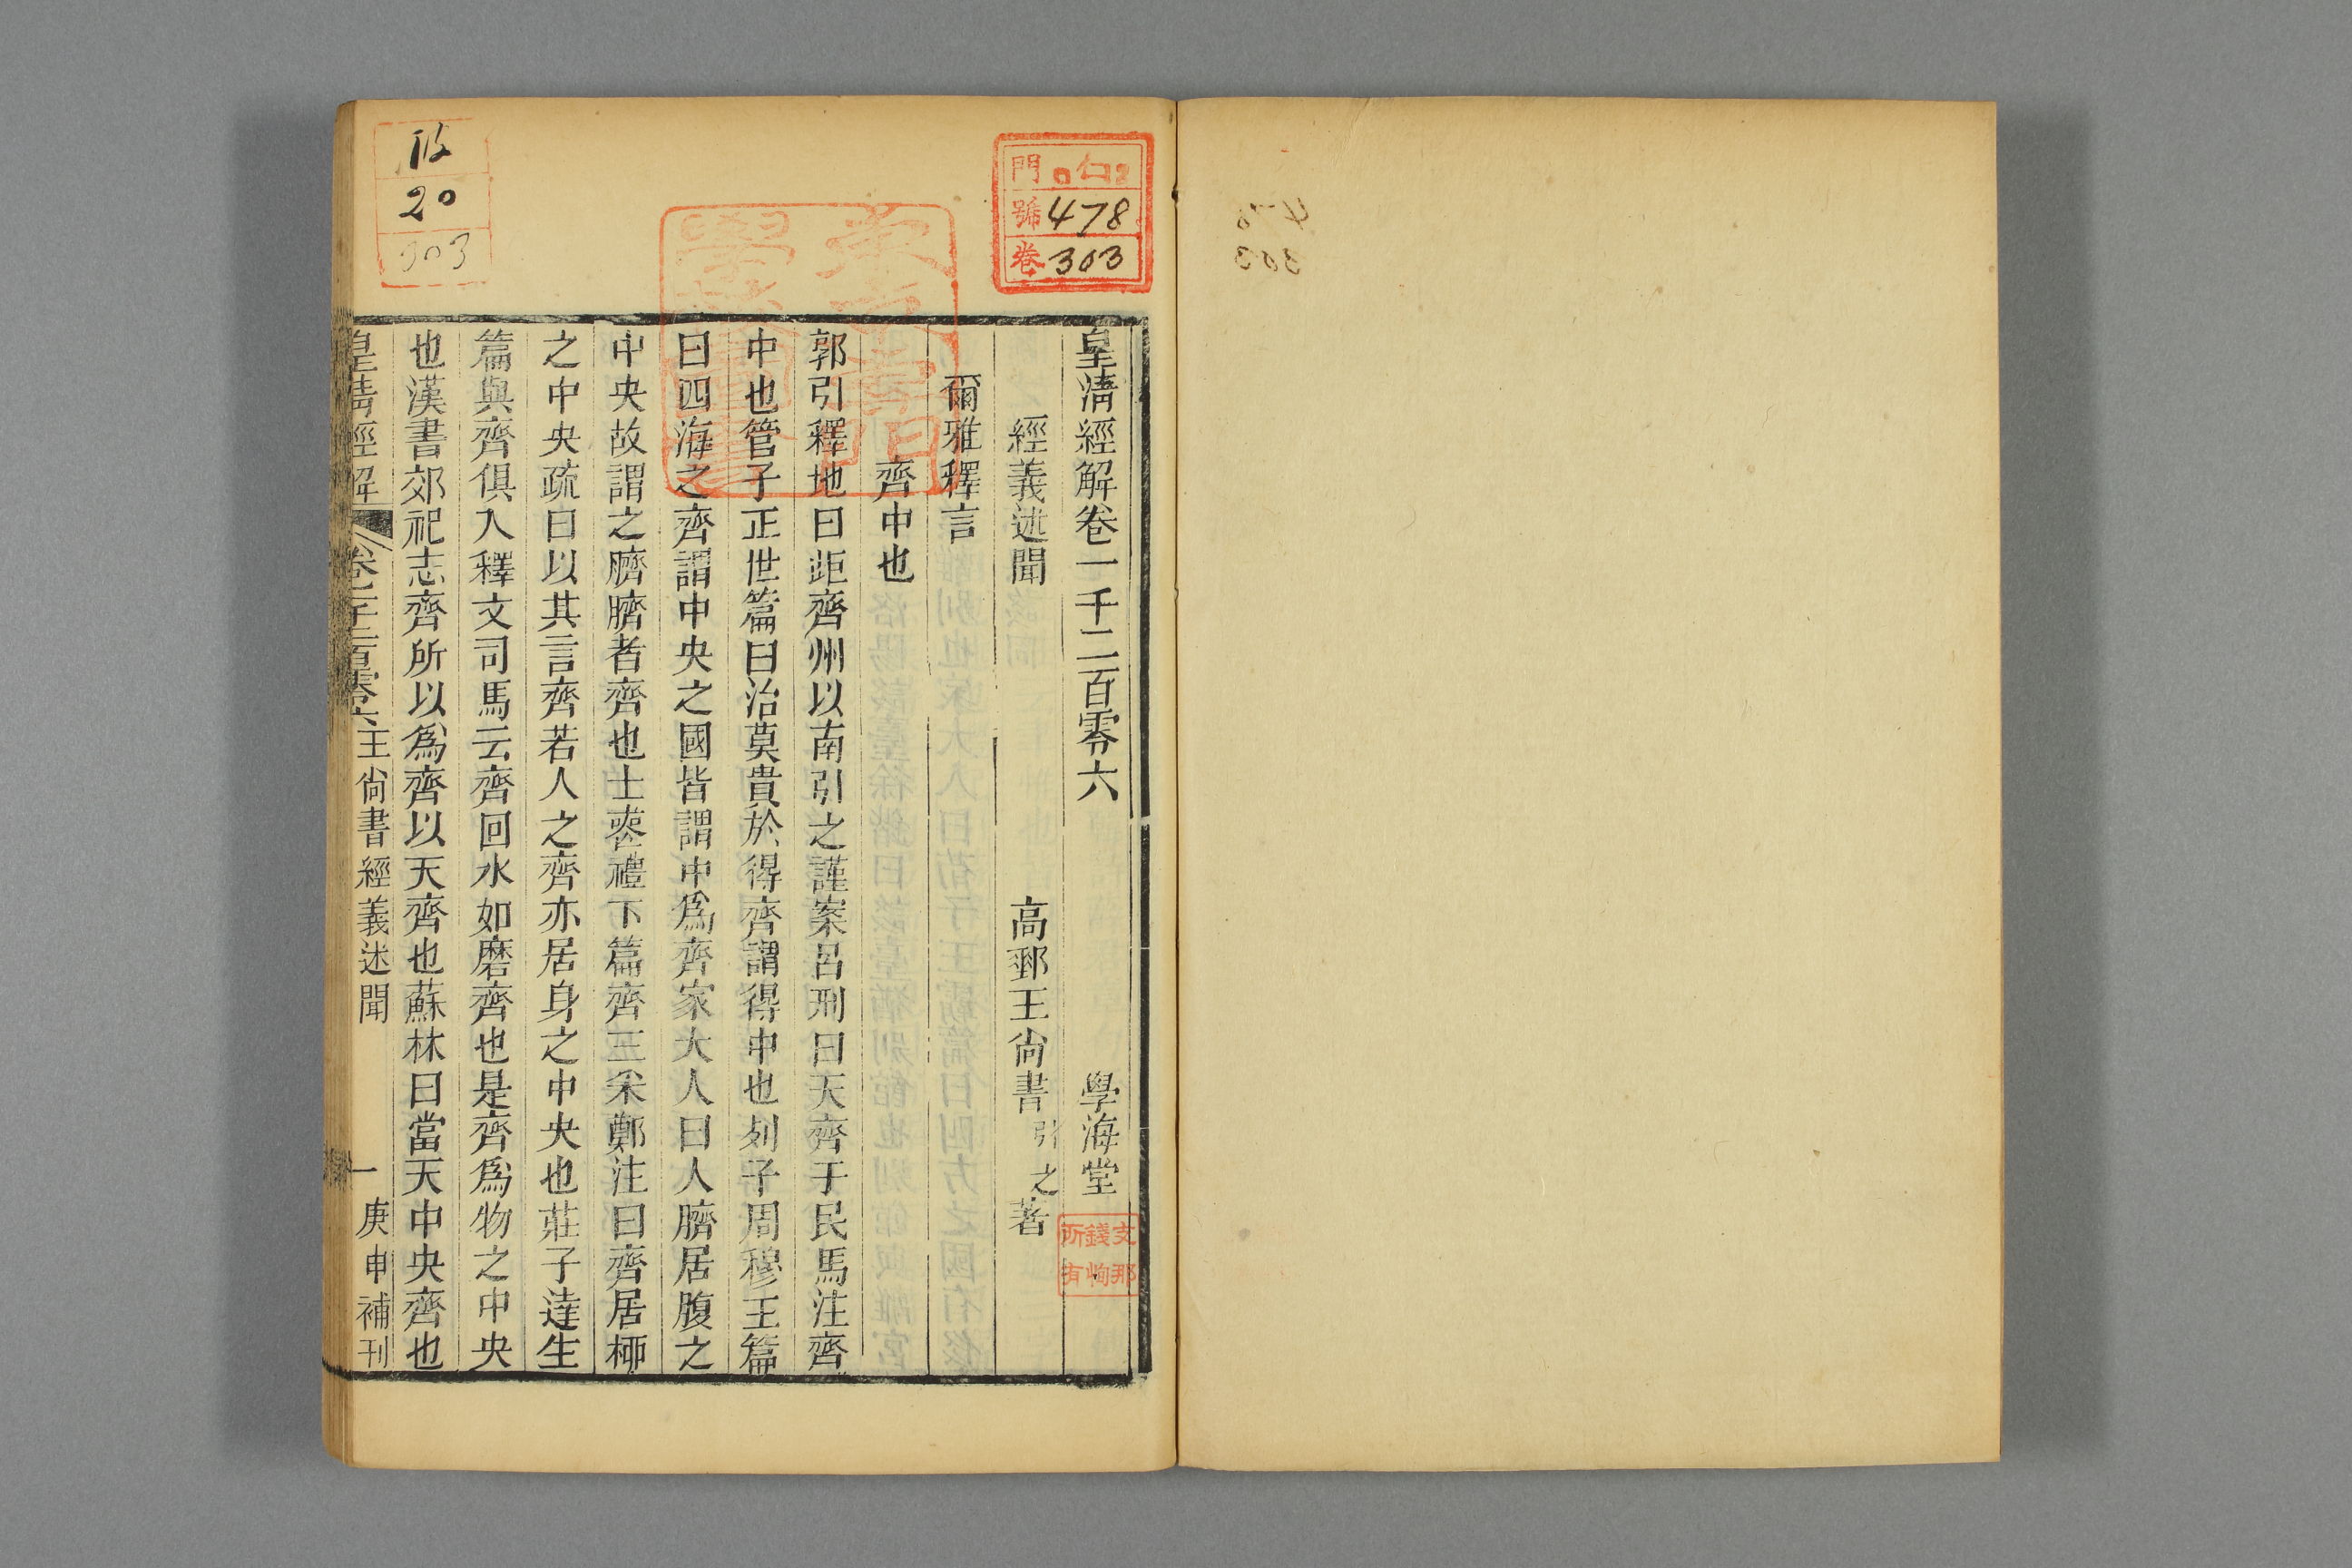 皇淸經解卷一千二百零六 學海堂
經義述聞 高郵王尙書引之著
爾雅釋言
齊中也
郭引釋地曰歫齊州以南引之謹案呂刑曰天齊于民馬注齊
中也管子正世篇曰治莫貴於得齊謂得中也列子周穆王篇
曰四海之齊謂中央之國皆謂中爲齊家大人曰人臍居腹之
中央故謂之臍臍者齊也士喪禮下篇齊三采鄭注曰齊居柳
之中央疏曰以其言齊若人之齊亦居身之中央也莊子達生
篇與齊俱入釋文司馬云齊回水如磨齊也是齊爲物之中央
也漢書郊祀志齊所以爲齊以天齊也蘇林曰當天中央齊也
皇淸經解 卷一千二百零六 王尙書經義述聞 一 庚申補刊
門 ロ12
號 478
卷 303
20
303
文那
錢恂
所有